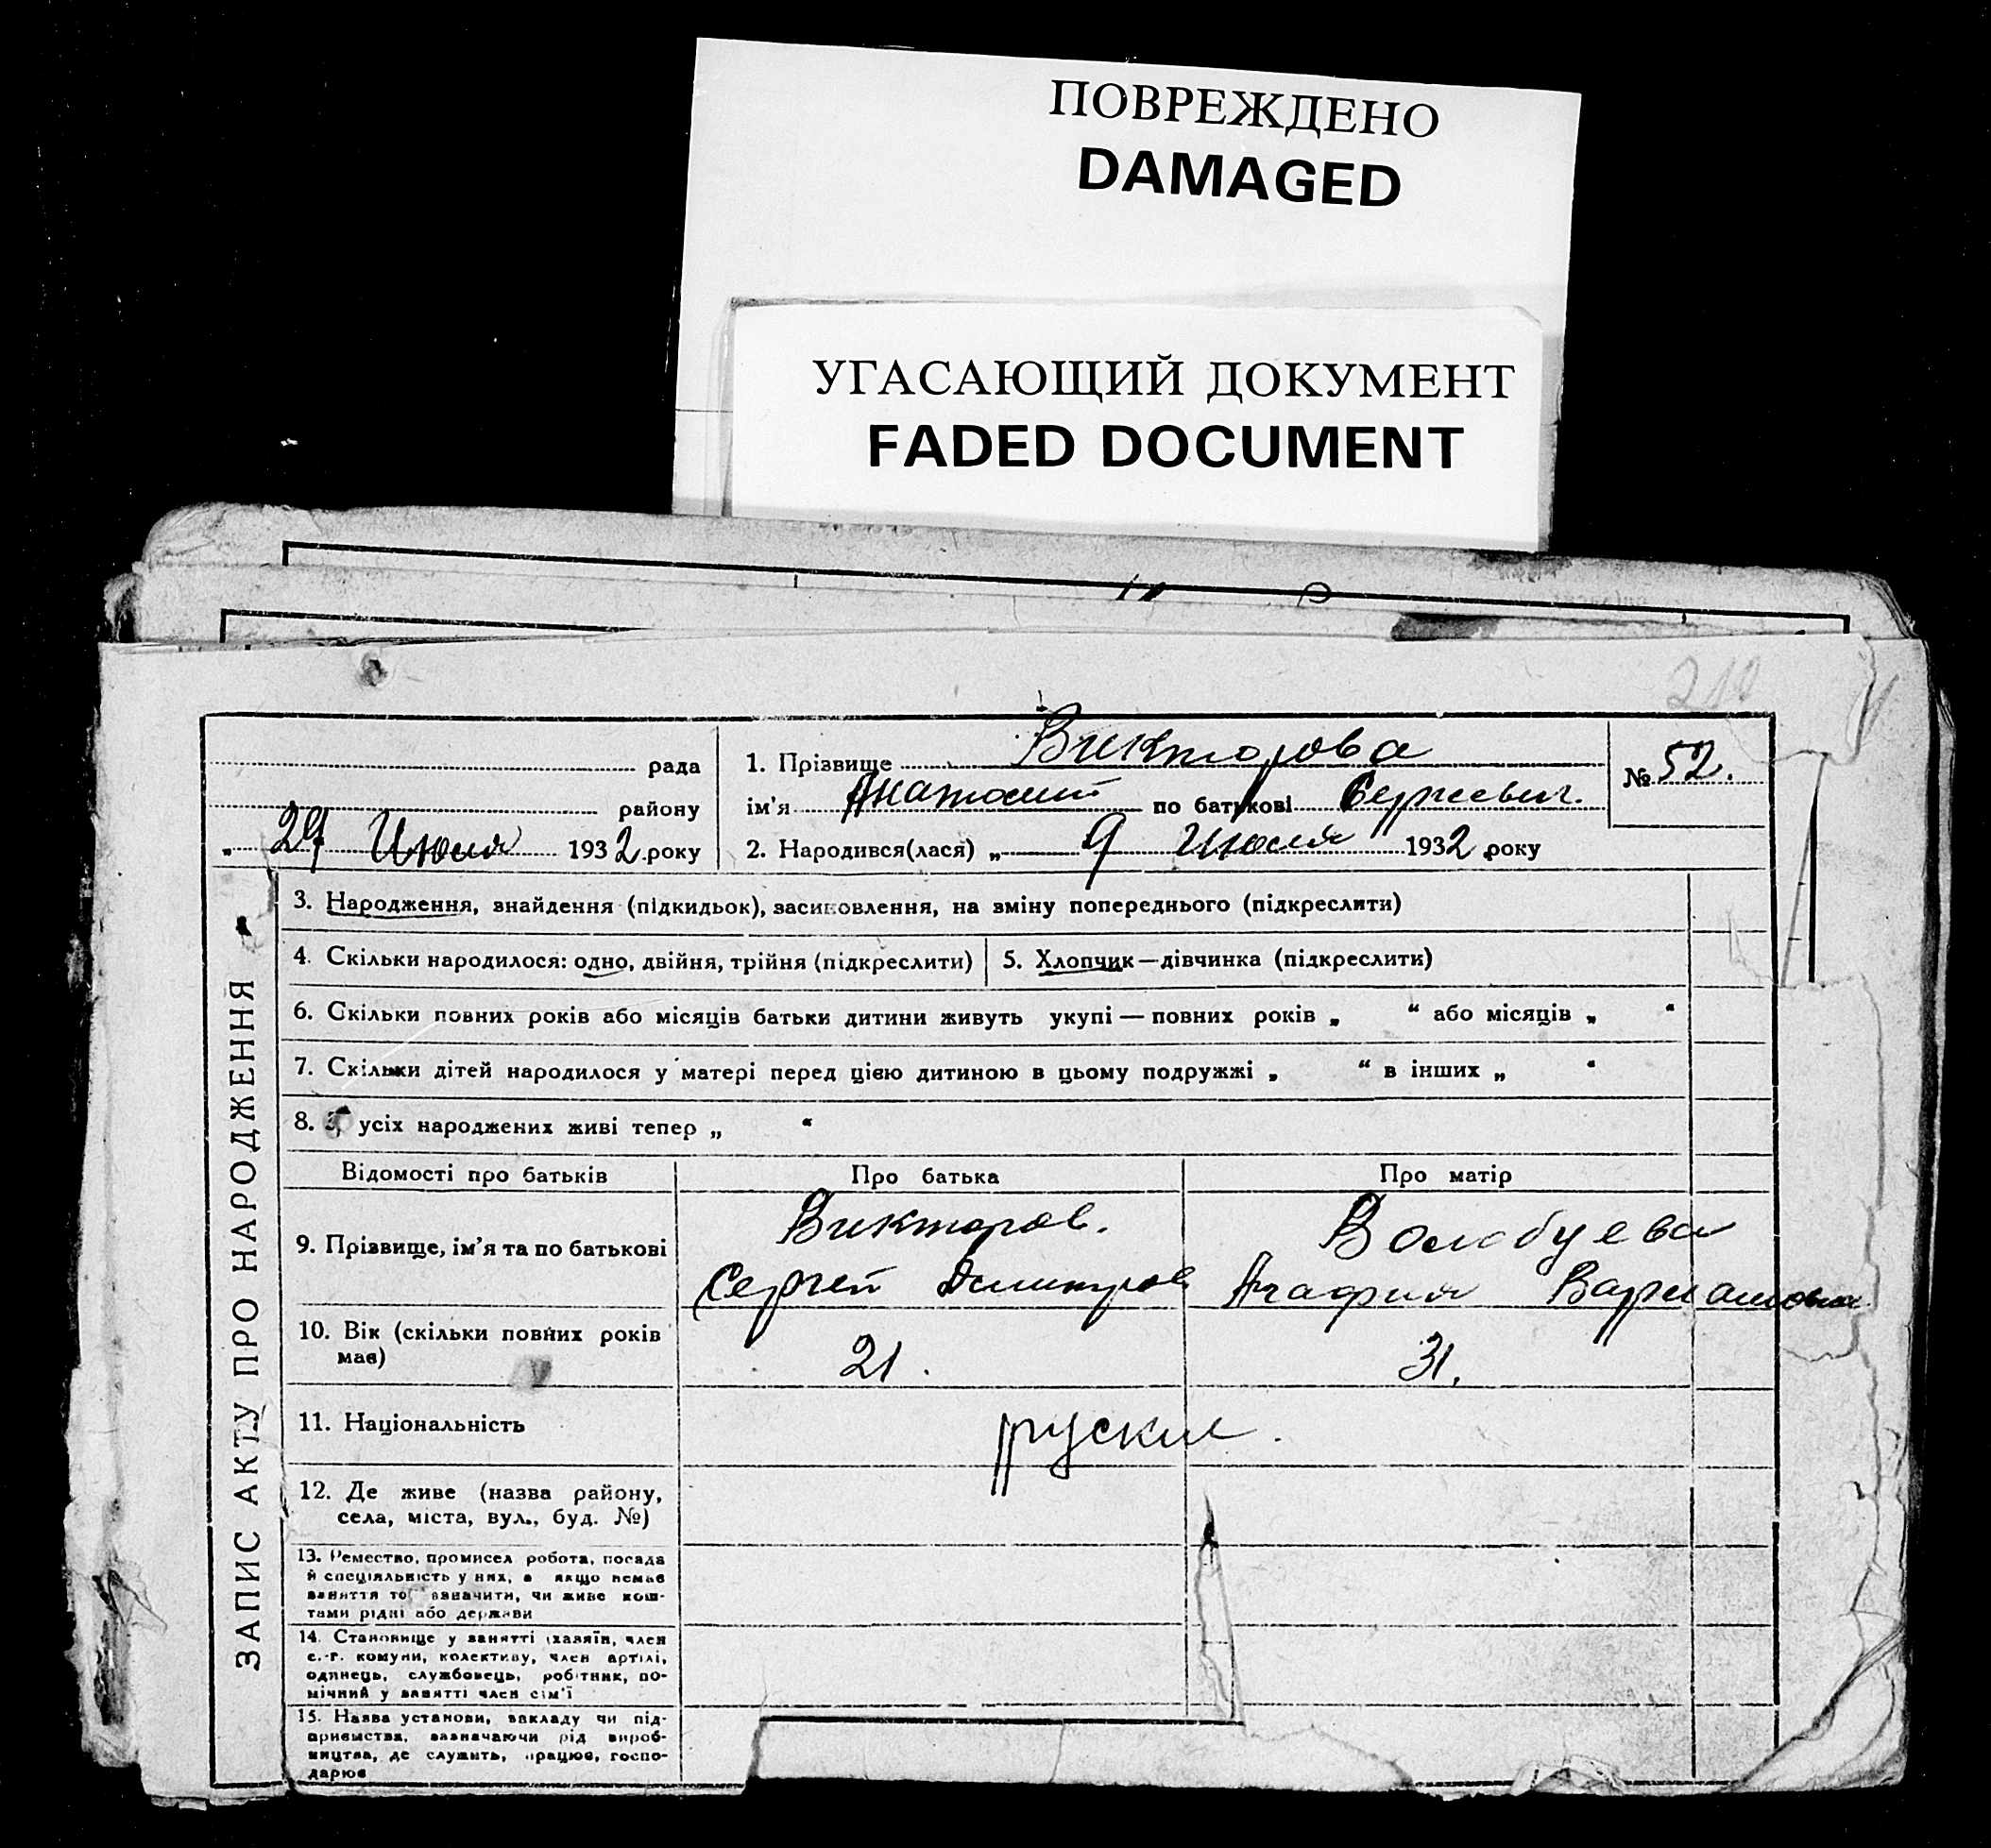 ПОВРЕЖДЕНО
DAMAGED
УГАСАЮЩИЙ ДОКУМЕНТ
FADED DOCUMENT
рада
району
„ 29 Июля 1932 року
1. Прізвище Викторова
ім'я Анатолий по батькові Сергеевич.
2. Народився(лася) „ 9 Июля 1932 року
№ 52.
ЗАПИС АКТУ ПРО НАРОДЖЕННЯ
3. Народження, знайдення (підкидьок), засиновлення, на зміну попереднього (підкреслити)
4. Скільки народилося: одно, двійня, трійня (підкреслити)
5. Хлопчик—дівчинка (підкреслити)
6. Скільки повних років або місяців батьки дитини живуть укупі — повних років „ “ або місяців „ “
7. Скільки дітей народилося у матері перед цією дитиною в цьому подружжі „ “ в інших „ “
8. З усіх народжених живі тепер „ “
Відомості про батьків Про батька Про матір
9. Прізвище, ім'я та по батькові
Викторов. Волобуева
Сергей Дмитров Агафия
10. Вік (скільки повних років
має)
21. 31.
11. Національність руские.
12. Де живе (назва району,
села, міста, вул., буд. №)
13. Ремество, промисел робота, посада
й спеціяльність у них, а якщо немає
заняття то зазначити, чи живе кош-
тами рідні або держави
14. Становище у занятті (хазяїн, член
с.-г. комуни, колективу, член артілі,
одинець, службовець, робітник, по-
мічний у занятті член сім'ї
15. Назва установи, закладу чи під-
приємства, зазначаючи рід вироб-
ництва, де служить, працює, госпо-
дарює